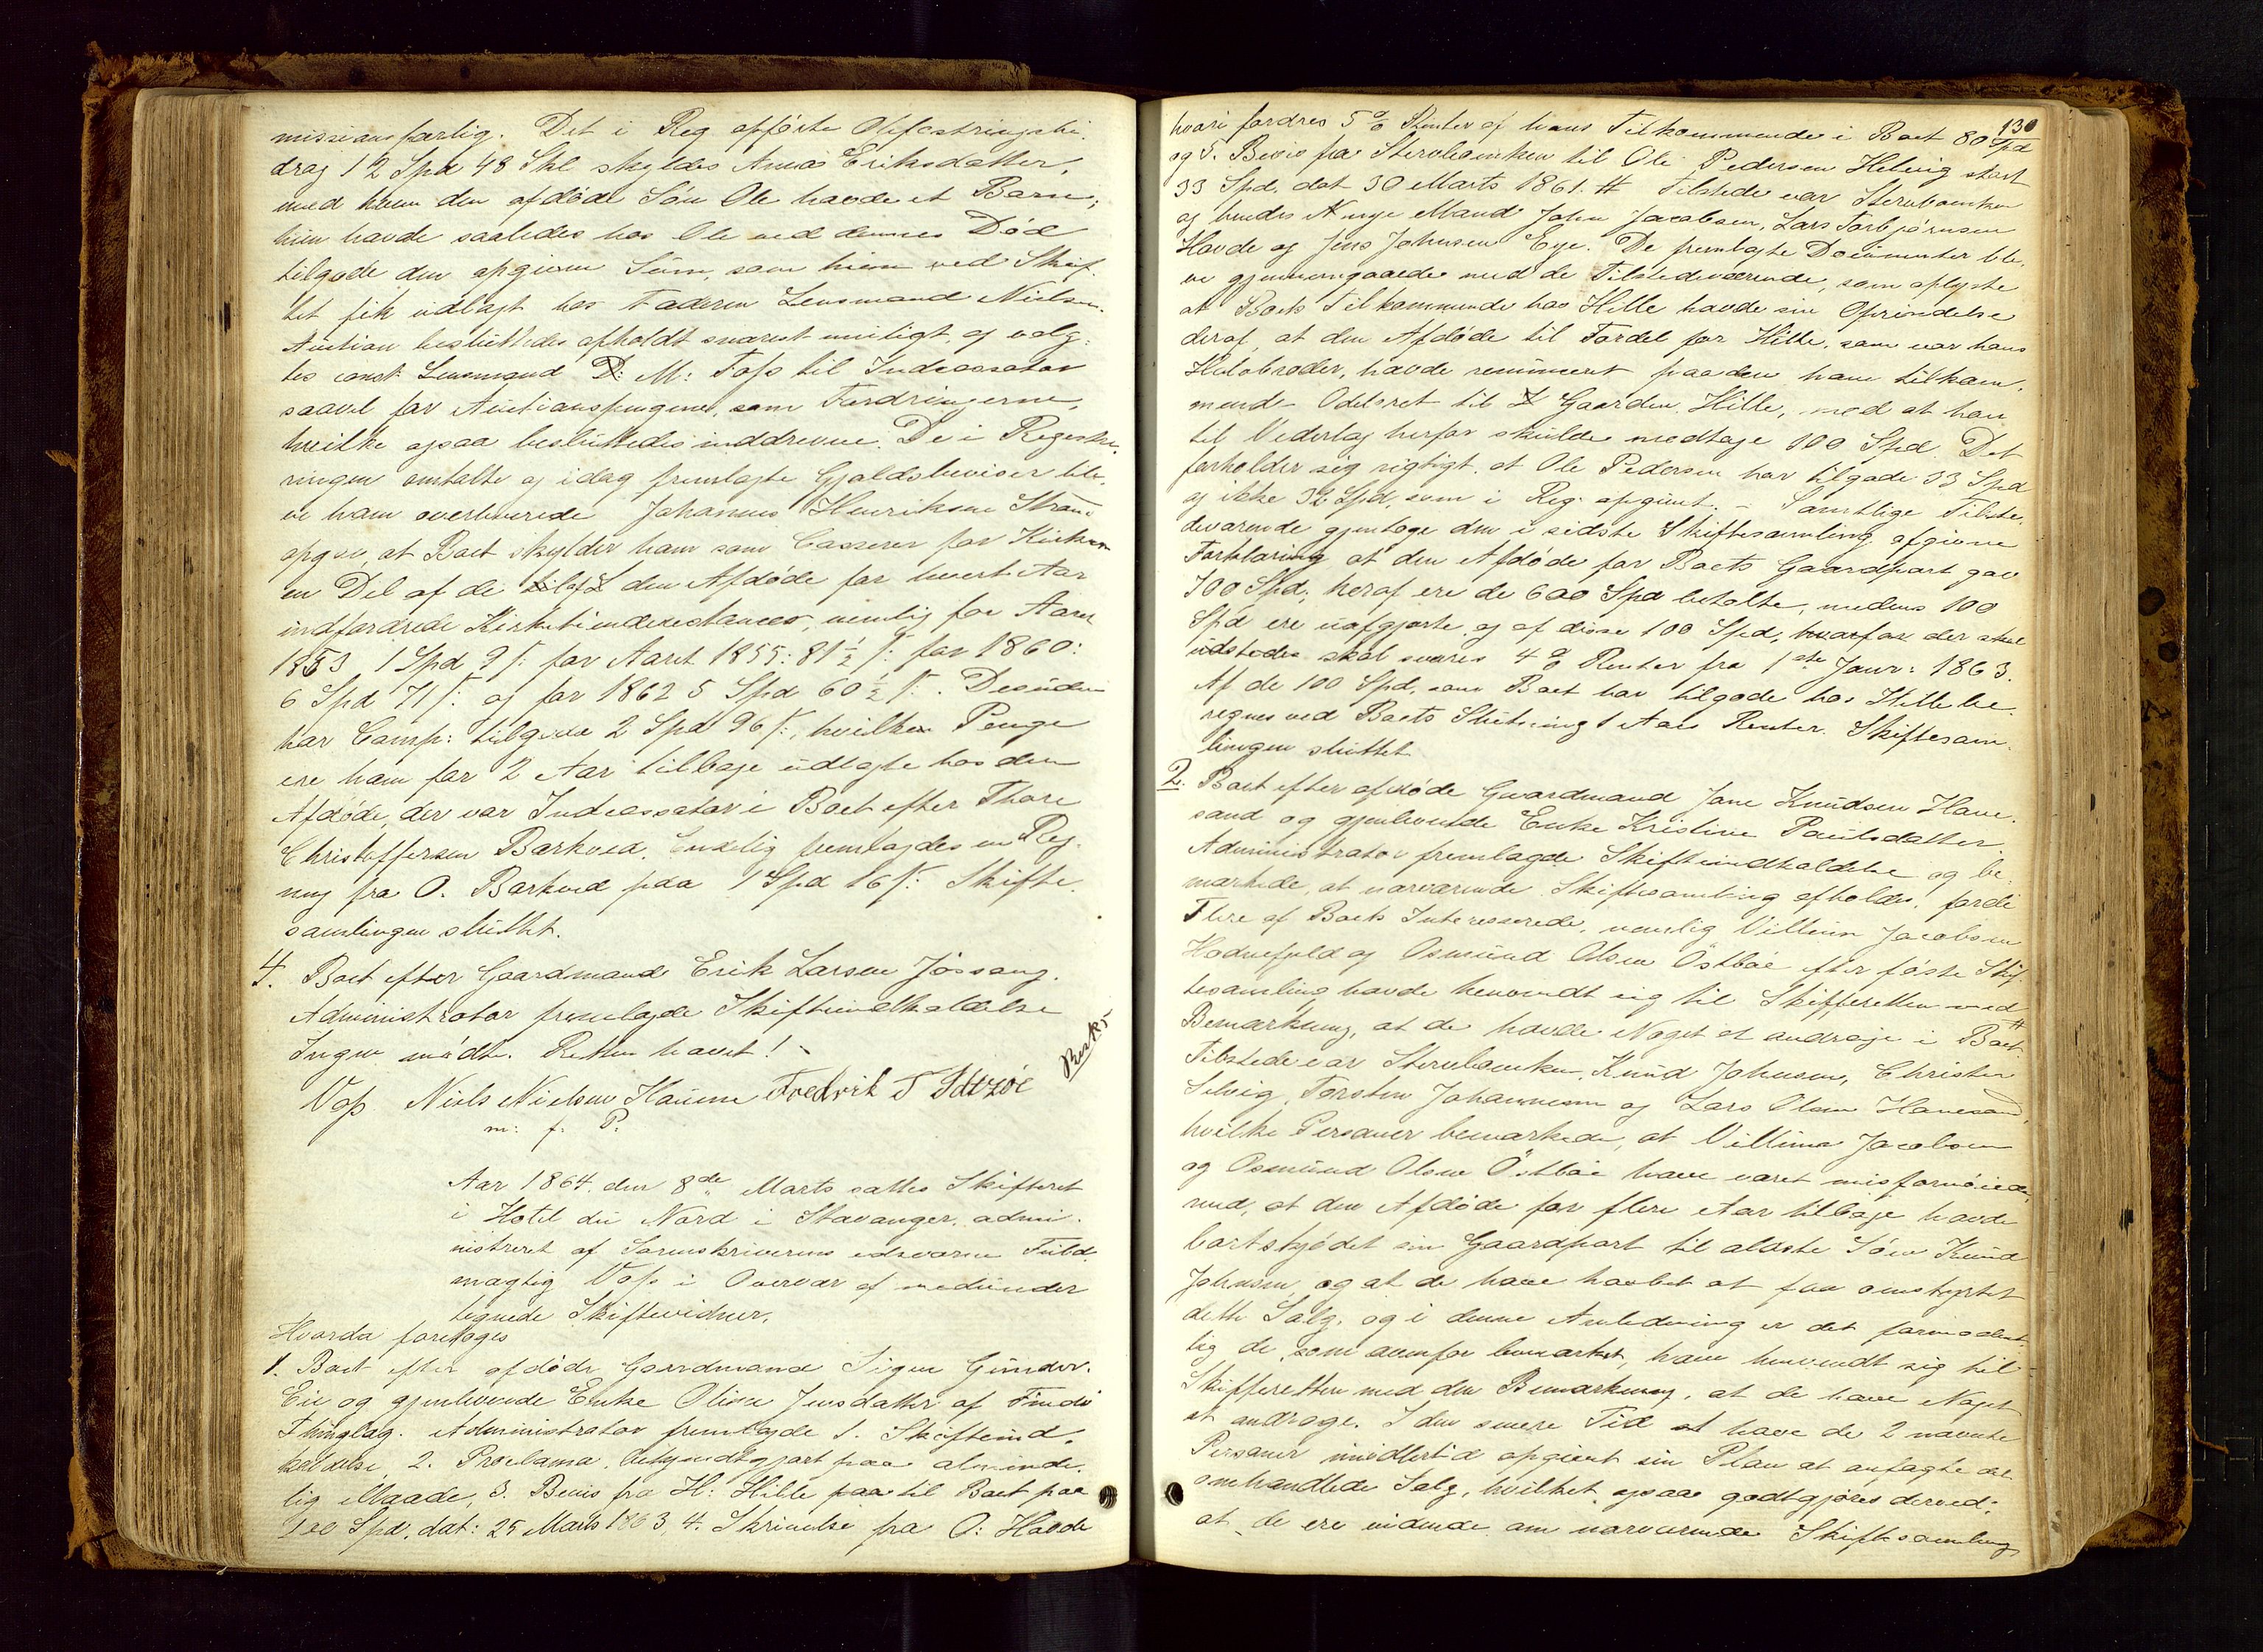 missionsfærlig. Det i Reg opførte Olifostringsbi-
drag 12 Spd 48 Skl skyldes Anna Eriksdatter,
med hvem den afdøde Søn Ole havde et Barn;
hun havde saaledes hos Ole ved dennes Død
tilgode den opgivne Sum, som hun ved Skif-
tet fik udlagt hos Faderen Lensmand Nielsen.
Auction besluttedes afholdt snarest muligt, og valg-
tes const. Lensmand D: M: Foss til Indcassator
saavel for Auctionspengene, som Fordringerne,
hvilke ogsaa besluttedes inddrevne. De i Registre-
ringen omtalte og idag fremlagte Gjældsbeviser ble-
ve ham overleverede Johannes Henriksen Strand
opgav, at Boet skylder ham som Casserer for Kirken
en Del af de den Afdøde for hvert Aar
indfordrede Kirketienderestancer, nemlig for Aaret
1853 1 Spd 9 s: for Aaret 1855: 81½ s: for 1860:
6 Spd 71 s: og for 1862 5 Spd 60½ s:. Desuden
har Comp: tilgode 2 Spd 96 s:, hvilke Penge
ere ham for 2 Aar tilbage udlagte hos den
Afdøde, der var Indcassator i Boet efter Thore
Christoffersen Barkved. Endelig fremlagdes en Reg-
ning fra O. Barkved paa 1 Spd 16 s: Skifte-
samlingen sluttet.
4. Boet efter Gaardmand Erik Larsen Jøssang.
Administrator fremlagde Skifteindkaldelse
Ingen mødte. Retten hævet!
Voss Niels Nielsen Hauene Fredrik T
m: f: P:
Aar 1864 den 8de Marts sattes Skifteret
i Hotel du Nord i Stavanger, admi-
nistreret af Sorenskriverens edsvorne Fuld-
mægtig Voss i Overvær af medunder-
tegnede Skiftevidner.
Hvorda foretoges
1. Boet efter afdøde Gaardmand Sigur Gunder-
Eie og gjenlevende Enke Olive Jensdatter af Findø
Thinglag. Administrator fremlagde 1. Skifteind-
kaldelse 2. Proclama, bekjendtgjort paa alminde-
lig Maade, 3. Bevis fra H: Hille paa til Boet paa
100 Spd. dat: 25 Marts 1863, 4. Skrivelse fra O: Havde
130
hvori fordres 5 % Renter af hans Tilkommende i Boet 80 Spd
og 5. Bevis fra Stervboenken til Ole Pedersen Helvig stort
33 Spd, dat 30 Marts 1861. # Tilstede var Stervboenken
og hendes Nuuye Mand John Jacobsen, Lars Torbjørnsen
Havde og Jens Johnsen Eye. De fremlagte Documenter ble-
ve gjennemgaaede med de Tilstedeværende, som oplyste
at Boets Tilkommende hos Hille havde sin Oprindelse
deraf, at den Afdøde til Fordel for Hille, som var hans
Halvbroder, havde renunceret paa den ham tilkom-
mende Odelsret til Gaarden Hille, mod at han
til Vederlag herfor skulde modtage 100 Spd. Det
forholder sig rigtigt, at Ole Pedersen har tilgode 33 Spd
og ikke 32 Spd, som i Reg: opgivet. – Samtlige Tilste-
deværende gjentoge den i sidste Skiftesamling afgivne
Forklaring, at den Afdøde for Boets Gaardpart gav
700 Spd; heraf ere de 600 Spd betalte, medens 100
Spd ere uafgjorte, og af disse 100 Spd, hvorfor der skal
udstedes skal svares 4 % Renter fra 1ste Janr: 1863.
Af de 100 Spd, som Boet har tilgode hos Hille be-
regnes ved Boets Slutning 1 Aars Renter. Skiftesam-
lingen sluttet
2. Boet efter afdøde Gaardmand Jone Knudsen Hane-
sand og gjenlevende Enke Kristine Poulsdatter.
Administrator fremlagde Skifteindkaldelse og be-
mærkede, at nærværende Skiftesamling afholdes, fordi
Flere af Boets Interesserede, nemlig Villum Jacobsen
Hodnefjeld og Osmund Olsen Østbøe efter første Skif-
tesamling havde henvendt sig til Skifteretten med
Bemærkning, at de havde Noget at andrage i Boet. #
Tilstede var Stervboenken, Knud Johnsen, Christen
Selvig, Torsten Johannesen og Lars Olsen Hanesand,
hvilke Personer bemærkede, at Villum Jacobsen
og Osmund Olsen Østbøe have været misfornøiede
med, at den Afdøde for flere Aar tilbage havde
bortskjødet sin Gaardpart til ældste Søn Knud
Johnsen, og at de have haabet at faa omstyrtet
dette Salg, og i denne Anledning er det formodent-
lig de, som ovenfor bemærket, have henvendt sig til
Skifteretten med den Bemærkning, at de have Noget
at andrage. I den senere Tid have de 2 nævnte
Personer imidlertid opgivet sin Plan at anfægte det
omhandlede Salg, hvilket ogsaa godtgjøres derved,
at de ere vidende om nærværende Skiftesamling